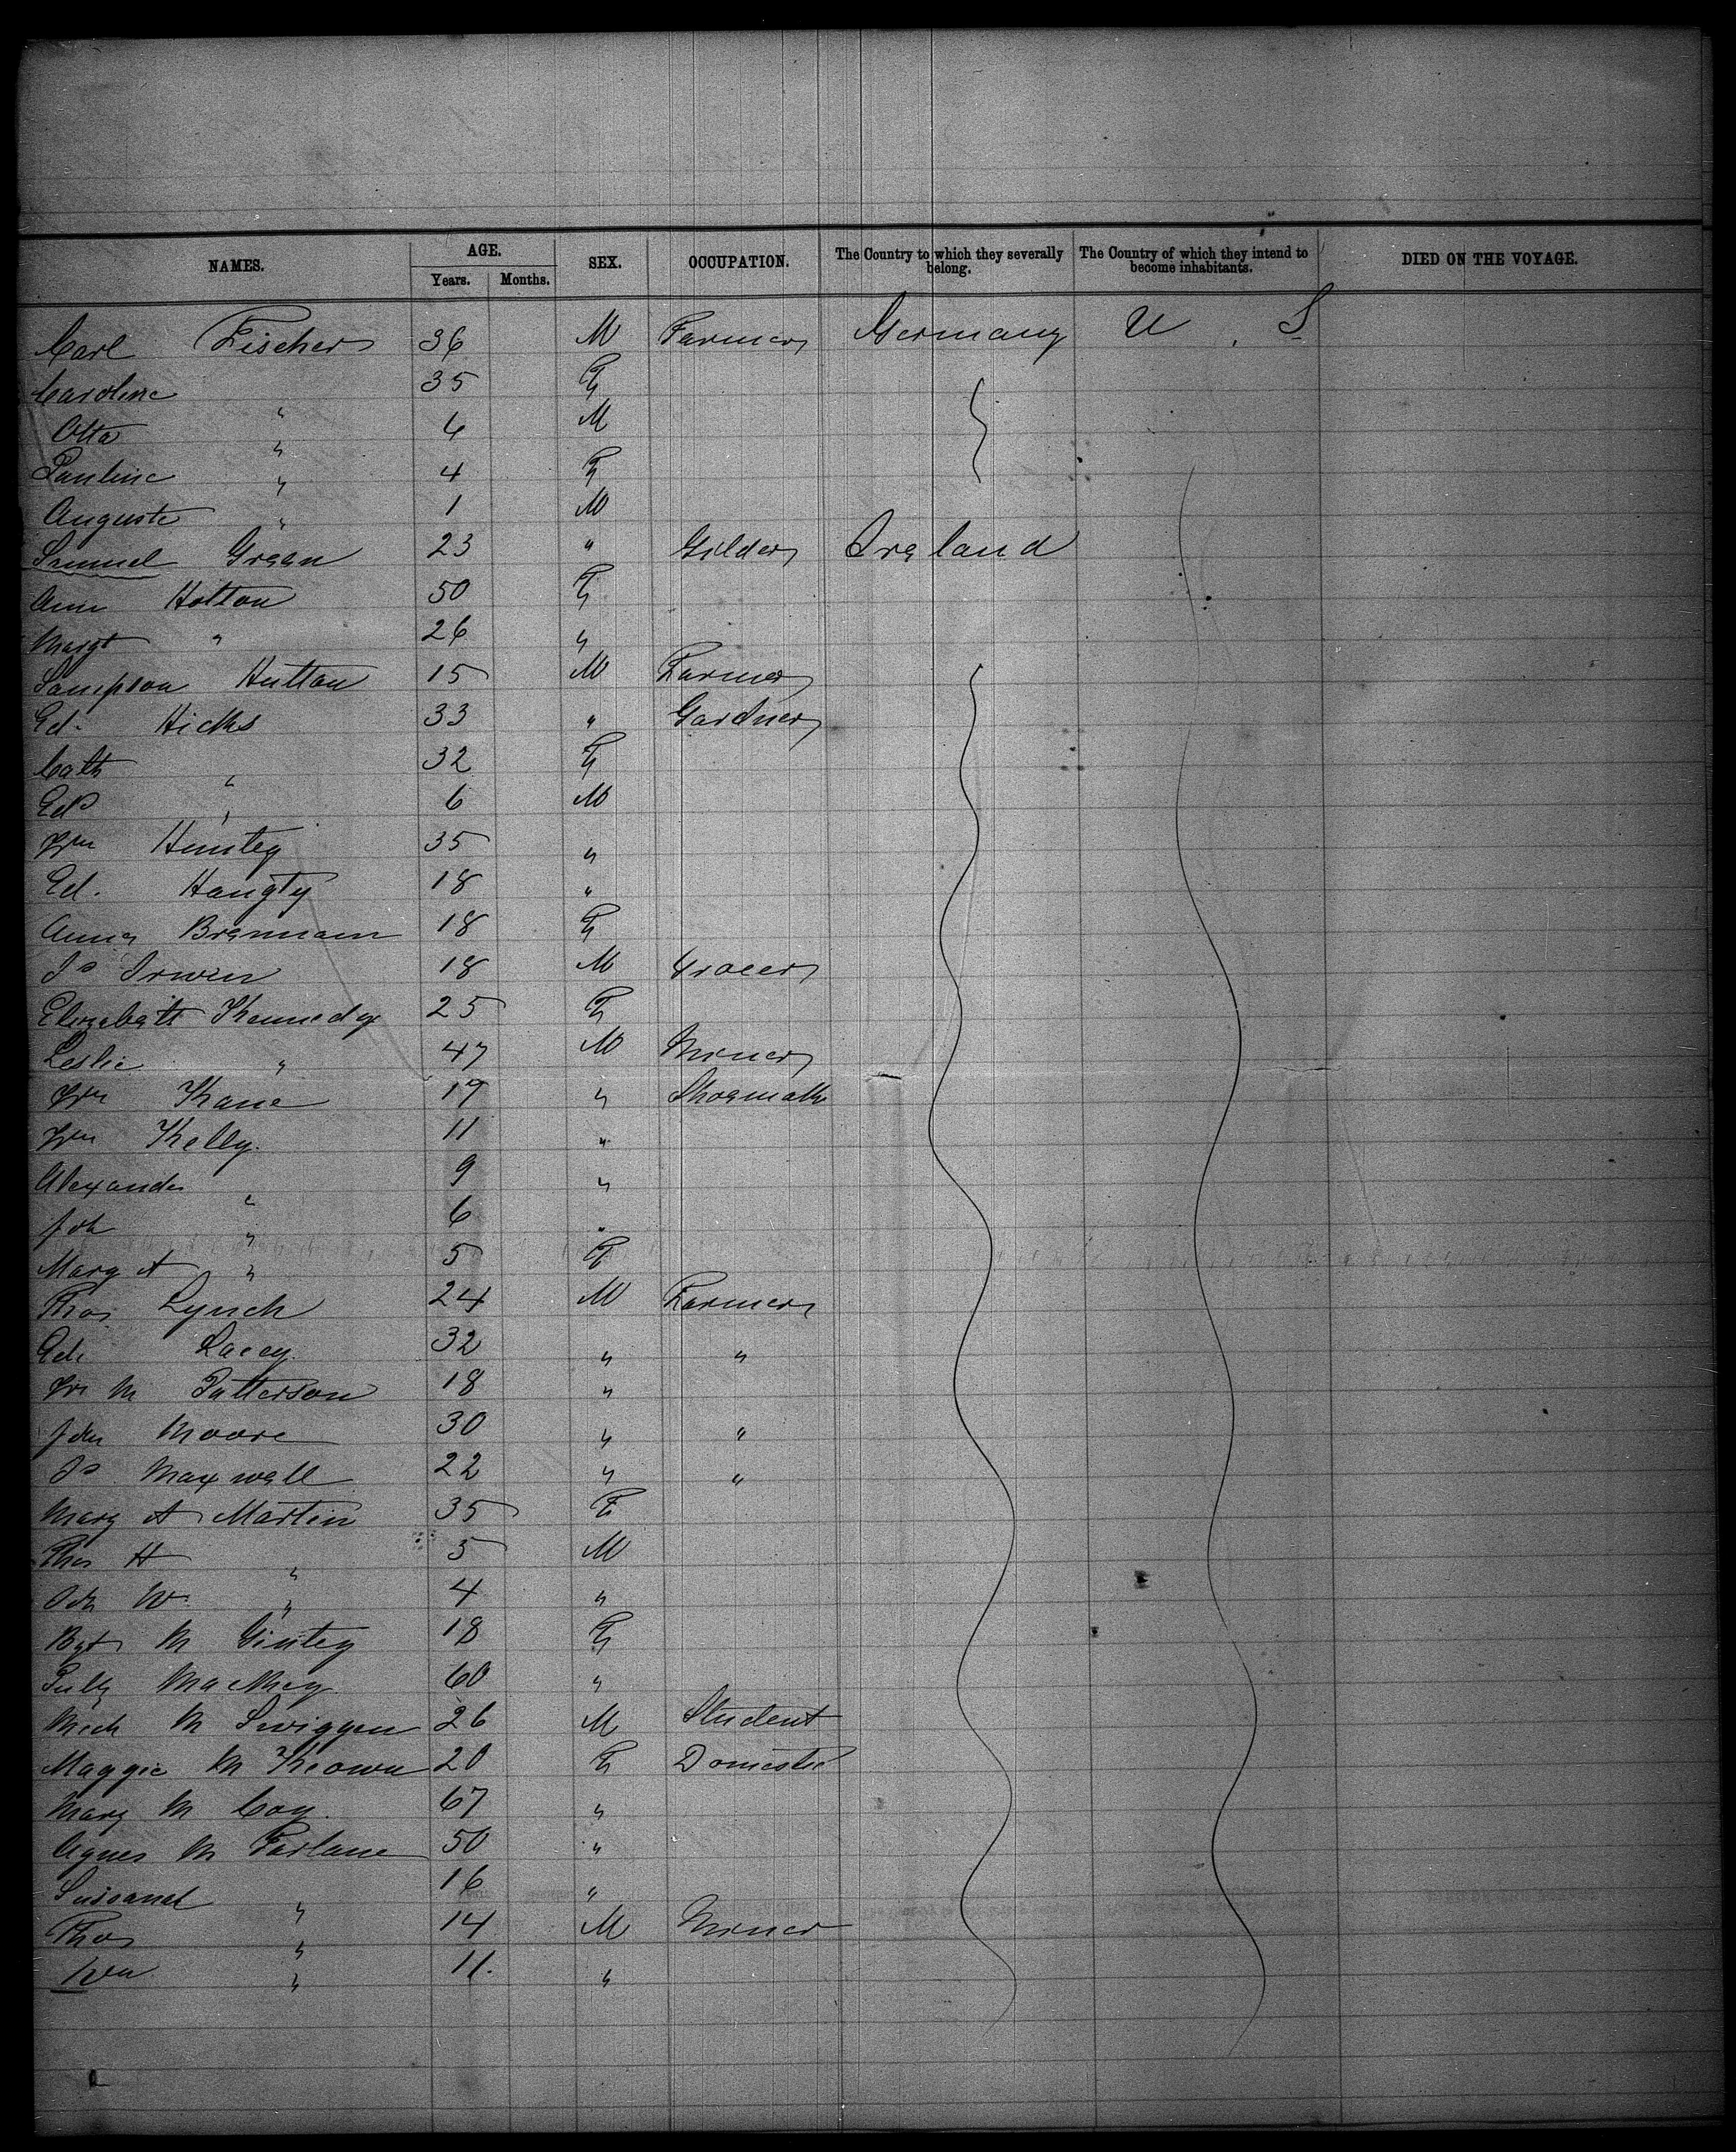 NAMES. AGE. Years. Months. SEX. OCCUPATION. The Country to which they severally belong. The Country of which they intend to become inhabitants. DIED ON THE VOYAGE.
Carl Fischer 36 M Farmer Germany U. S
Caroline " 35 F
Otto " 6 M
Pauline " 4 F
Auguste " 1 M
Samuel Green 23 " Gilder Ireland
Ann Hotton 50 F
Margt " 26 "
Sampson Hutton 15 M Farmer
Ed. Hicks 33 " Gardner
Cath " 32 F
Ed " 6 M
Wm 35 "
Ed. 18 "
Anna Brennan 18 F
Js Irwin 18 M Grocer
Elizabeth Kennedy 25 F
Leslie " 47 M Miner
Wm Kane 19 " Shoemak
Wm Kelly. 11 "
Alexander " 9 "
Joh " 6 "
Mary A " 5 F
Thos Lynch 24 M Farmer
Ed. Lacey 32 " "
Wm M Patterson 18 "
John Moore 30 " "
Js Maxwell 22 " "
Mary A Martin 35 F
Thos H " 5 M
Joh W " 4 "
Bgt M Ginley 18 F
Mackey 60 "
Mich M Swiggen 26 M Student
Maggie M Keown 20 F Domestic
Mary M Coy. 67 "
Agnes M Farlane 50 "
Susanah " 16 "
Thos " 14 M Miner
Wm " 11. "